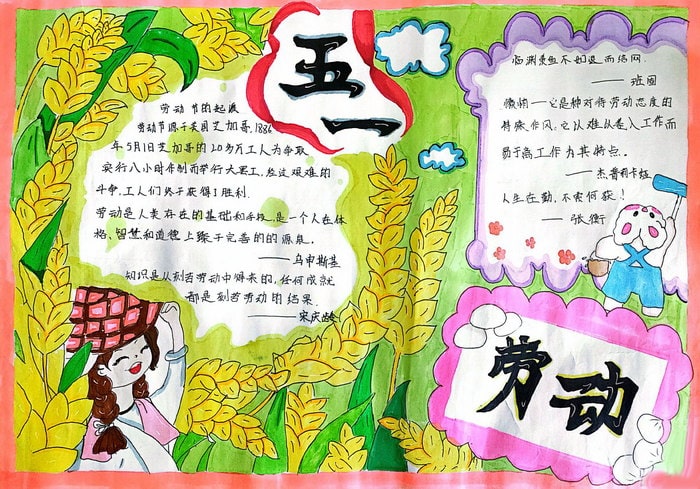 五
一
劳动节的起源
劳动节源于美国芝加哥.1886
年5月1日芝加哥的20多万工人为争取
实行八小时制而举行大罢工,经过艰难的
斗争,工人们终于获得了胜利.
劳动是人类存在的基础和手段,是一个人在体
格、智慧和道德上臻于完善的的源泉。
——乌申斯基
知识是从刻苦劳动中得来的,任何成就
都是刻苦劳动的结果.
——宋庆龄
临渊羡鱼不如退而结网.
——班固
懒惰一它是种对待劳动态度的
特殊作风:它以难以卷入工作而
易于离工作为其特点。
——杰普莉卡娃
人生在勤,不索何获!
——张衡
劳动